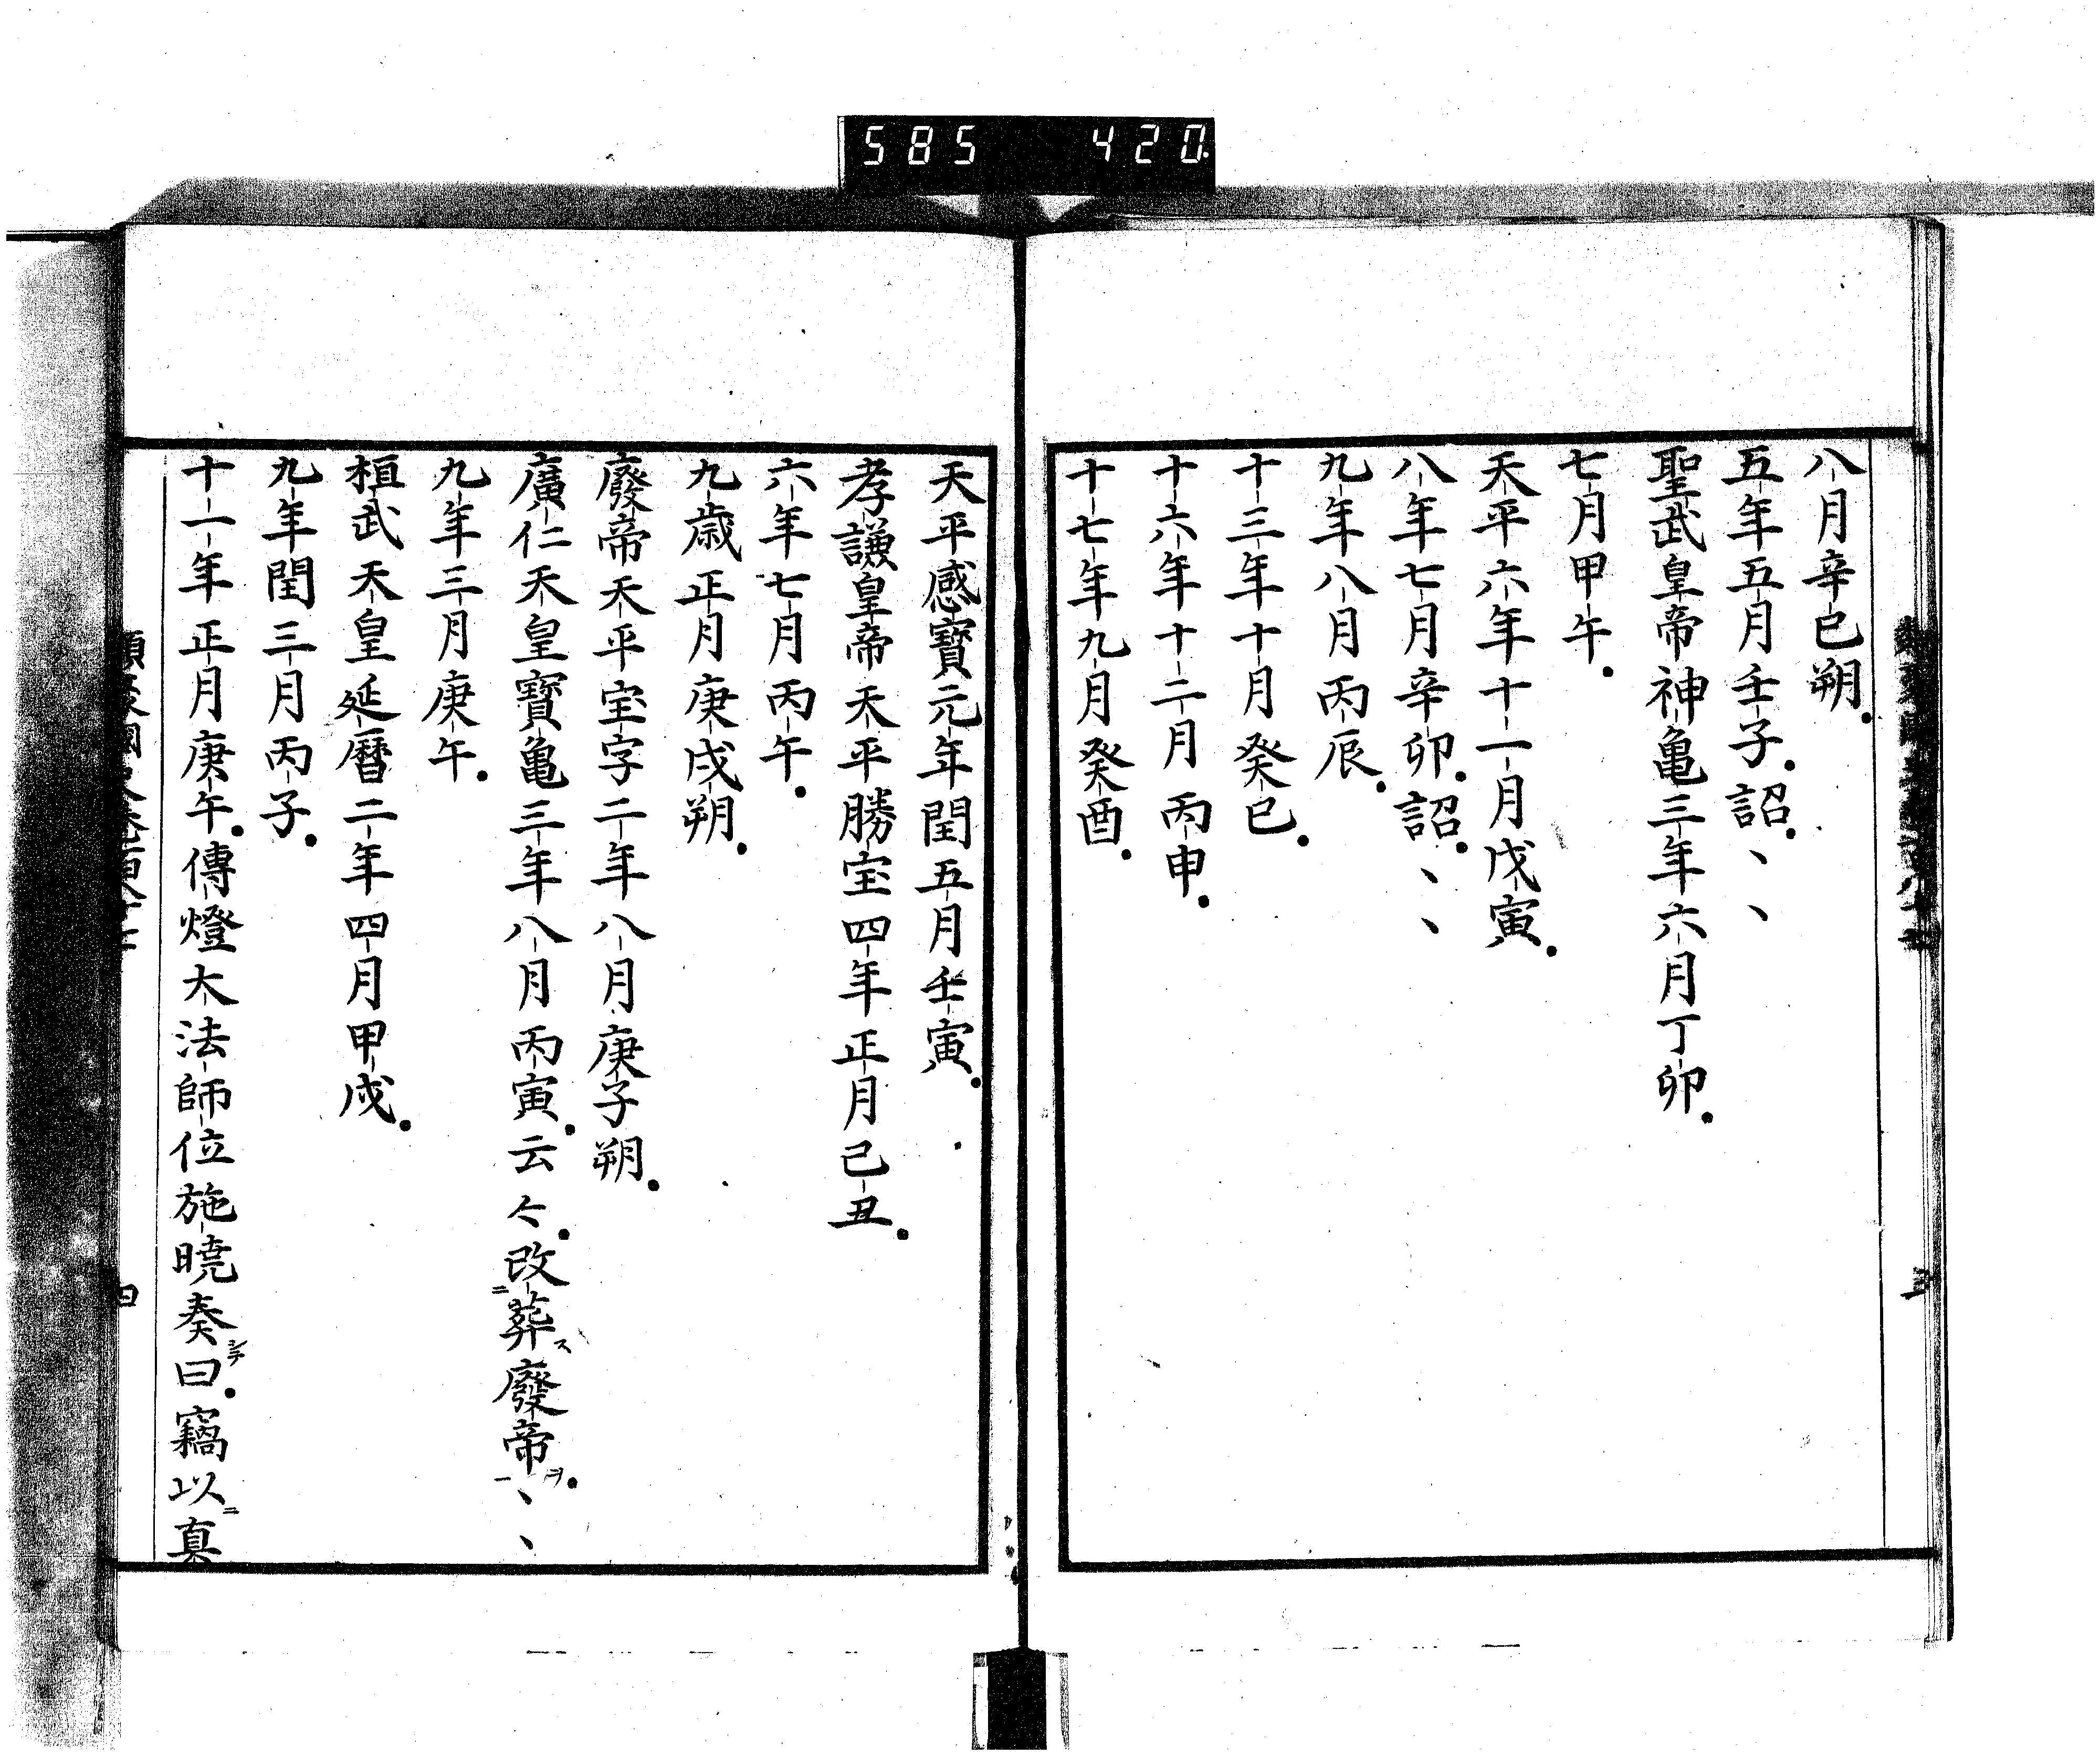 585 420.
八月辛巳朔.
五年五月壬子.詔.、、
聖武皇帝神亀三年六月丁卯.
七月甲午.
天平六年十一月戊寅.
八年七月辛卯.詔.、、
九年八月丙辰.
十三年十月癸巳.
十六年十二月丙申.
十七年九月癸酉.
三
天平感寶元年閏五月壬寅.
孝謙皇帝天平勝宝四年正月己丑.
六年七月丙午.
九歳正月庚戌朔.
廢帝天平宝字二年八月庚子朔.
廣仁天皇寶亀三年八月丙寅.云々.改二葬ス廢帝一ヲ.、、
九年三月庚午.
桓武天皇延暦二年四月甲戌.
九年閏三月丙子.
十一年正月庚午.傳燈大法師位施暁奏シテ曰.竊以ニ真